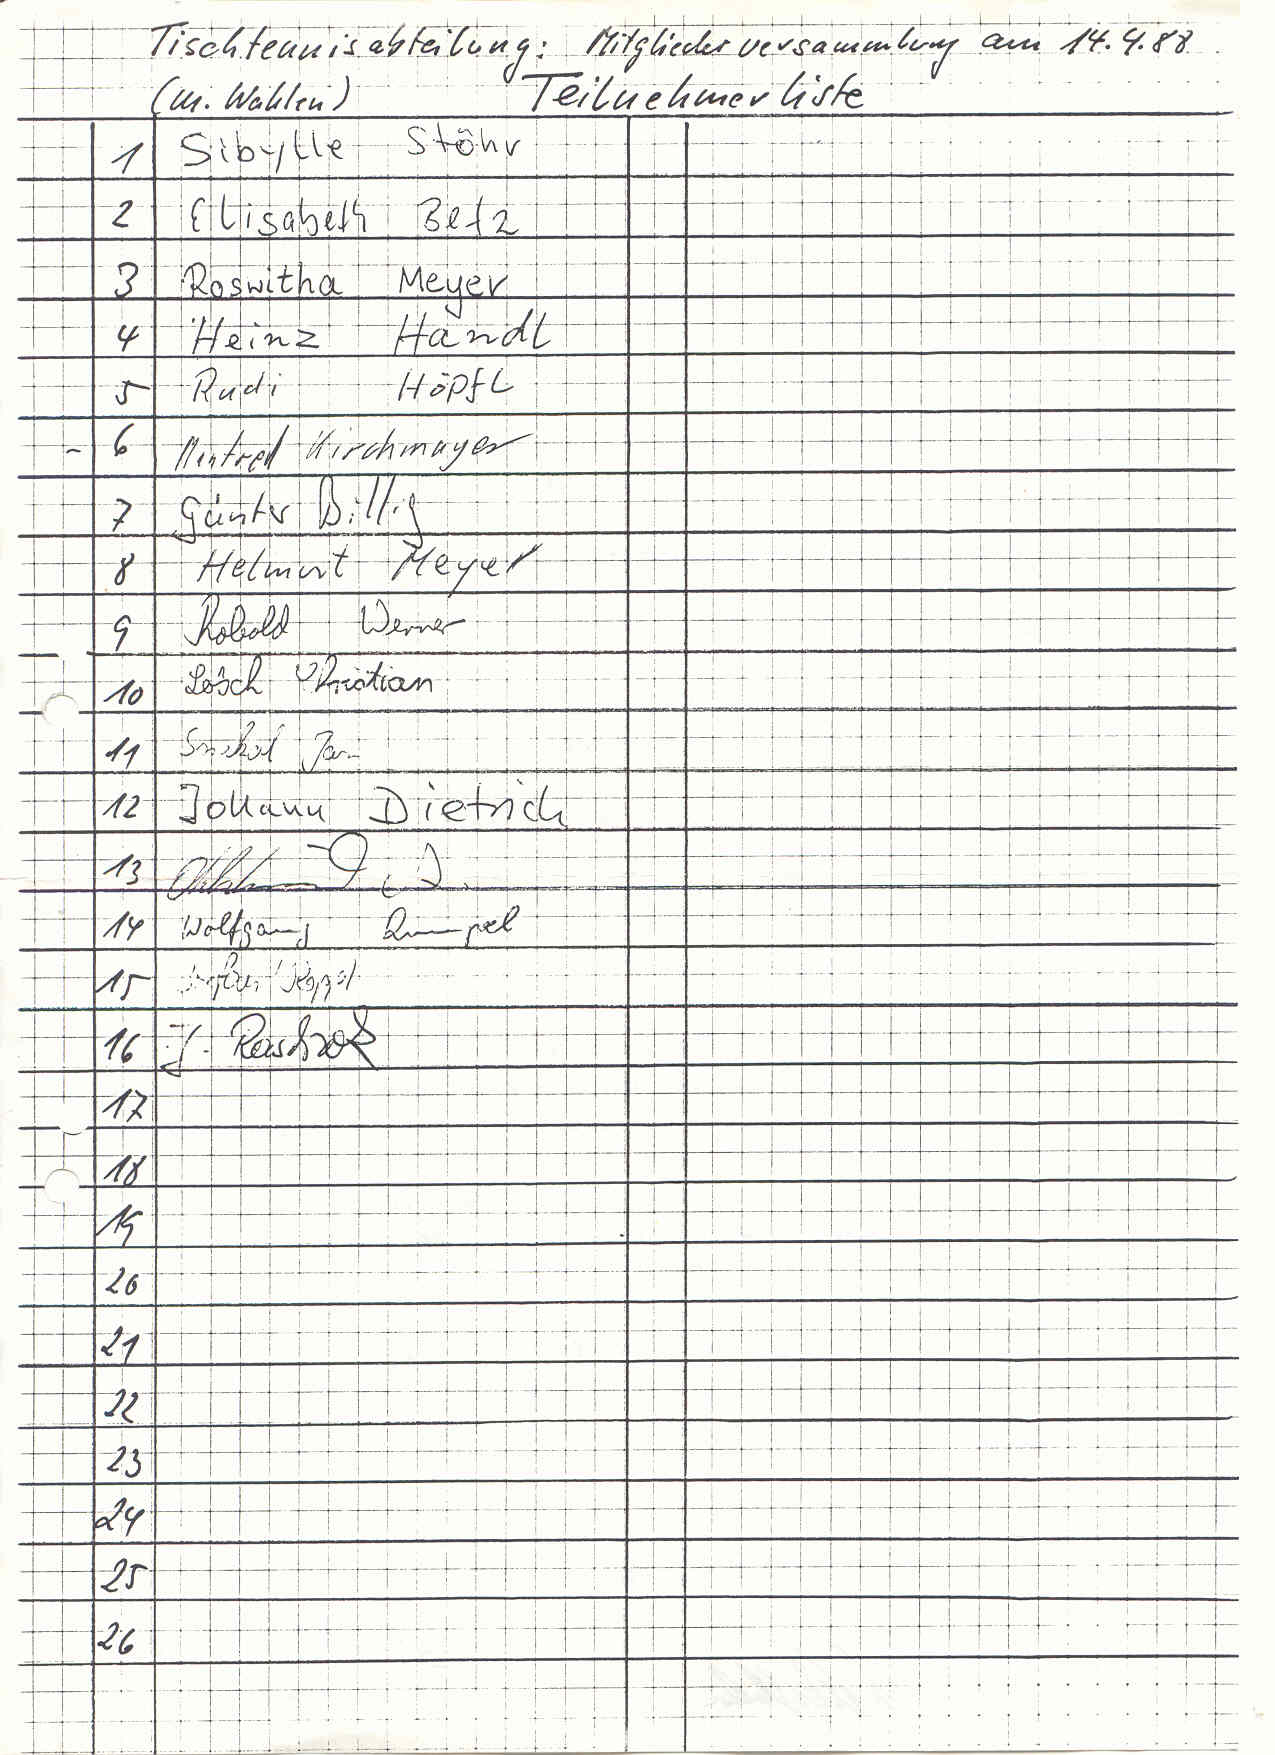 Tischtennisabteilung: Mitgliederversammlung am 14.4.88
(m. Wahlen) Teilnehmerliste
1 Sibylle Stöhr
2 Elisabeth Betz
3 Roswitha Meyer
4 Heinz Handl
5 Rudi Höpfl
- 6 Manfred Kirchmayer
7 Günter Billig
8 Helmut Meyer
9 Kobold Werner
10 Lösch Christian
11 Jan
12 Johann Dietrich
13
14 Wolfgang Rumpel
15
16 J. Raschzok
17
18
19
20
21
22
23
24
25
26